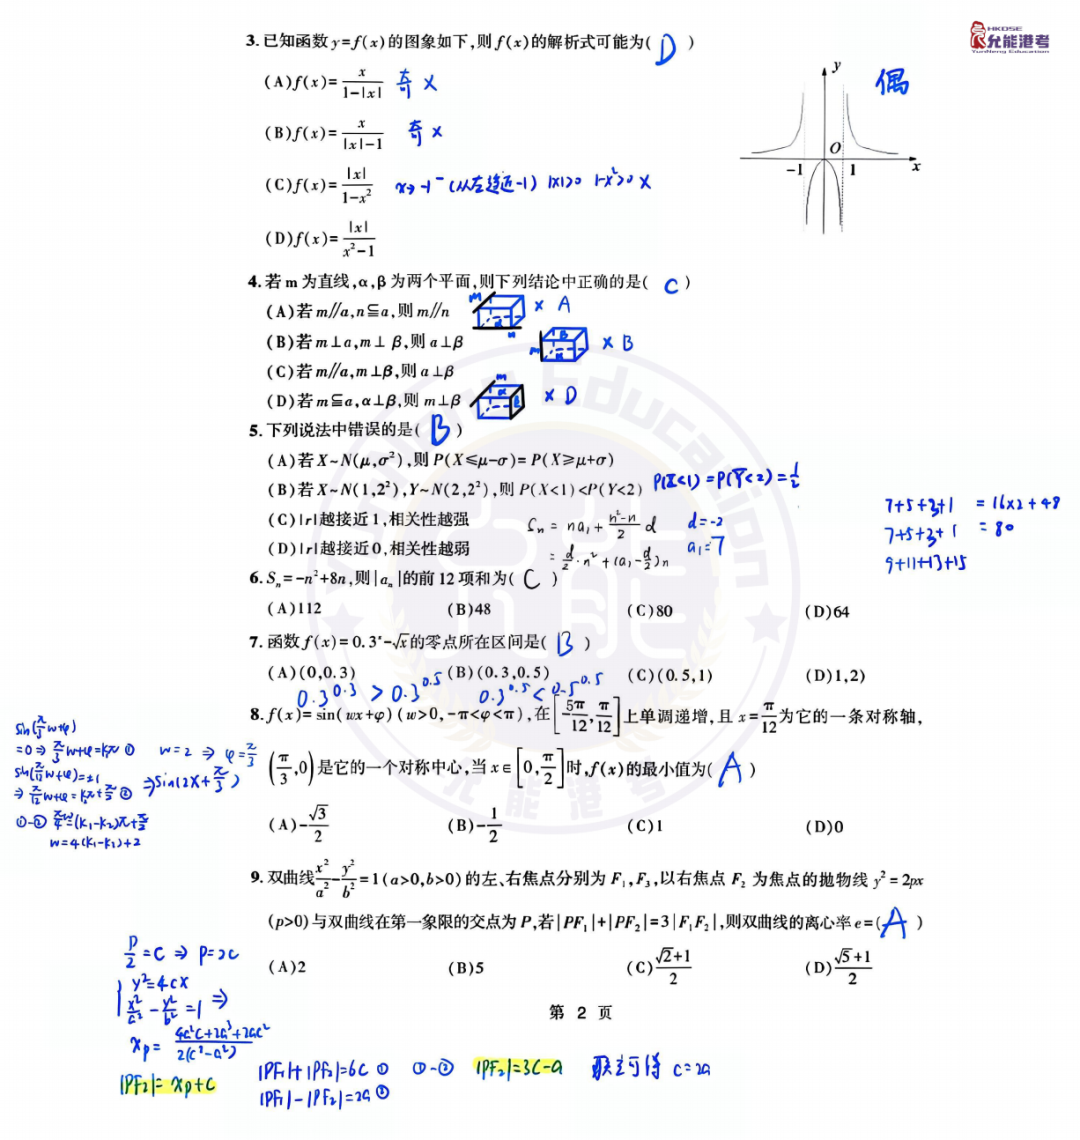 HKDSE
允能港考
YunNeng Education
3.已知函数y=f(x)的图象如下,则f(x)的解析式可能为( D )
(A)f(x)=x/(1-|x|) 奇 ×
(B)f(x)=x/(|x|-1) 奇 ×
(C)f(x)=|x|/(1-x²) x→-1⁻(从左趋近-1) |x|>0 1-x²>0 ×
(D)f(x)=|x|/(x²-1)
偶
y
O
-1 1 x
4.若m为直线,α,β为两个平面,则下列结论中正确的是( C )
(A)若m//a,n⊆a,则m//n × A
(B)若m⊥a,m⊥β,则a⊥β × B
(C)若m//a,m⊥β,则a⊥β
(D)若m⊆a,α⊥β,则m⊥β × D
5.下列说法中错误的是( B )
(A)若X~N(μ,σ²),则P(X≤μ-σ)=P(X≥μ+σ)
(B)若X~N(1,2²),Y~N(2,2²),则P(X<1)<P(Y<2) P(X<1)=P(Y<2)=1/2
(C)|r|越接近1,相关性越强
(D)|r|越接近0,相关性越弱
Sn=na₁+(n²-n)/2 d d=-2
=d/2·n²+(a₁-d/2)n a₁=7
7+5+3+1 =16×2+48
7+5+3+1 =80
9+11+13+15
6.Sₙ=-n²+8n,则|aₙ|的前12项和为( C )
(A)112 (B)48 (C)80 (D)64
7.函数f(x)=0.3ˣ-√x的零点所在区间是( B )
(A)(0,0.3) (B)(0.3,0.5) (C)(0.5,1) (D)1,2)
0.3^0.3 > 0.3^0.5 0.3^0.5 < 0.5^0.5
8.f(x)=sin(wx+φ)(w>0,-π<φ<π),在[-5π/12,π/12]上单调递增,且x=π/12为它的一条对称轴,
(π/3,0)是它的一个对称中心,当x∈[0,π/2]时,f(x)的最小值为( A )
(A)-√3/2 (B)-1/2 (C)1 (D)0
sin(π/3 w+φ)
=0⇒π/3 w+φ=kπ ① w=2 ⇒ φ=π/3
sin(π/12 w+φ)=±1 ⇒sin(2x+π/3)
⇒π/12 w+φ=k₂π+π/2 ②
①-② π/4 w=(k₁-k₂)π+π/2
w=4(k₁-k₂)+2
9.双曲线x²/a²-y²/b²=1(a>0,b>0)的左、右焦点分别为F₁,F₃,以右焦点F₂为焦点的抛物线y²=2px
(p>0)与双曲线在第一象限的交点为P,若|PF₁|+|PF₂|=3|F₁F₂|,则双曲线的离心率e=( A )
(A)2 (B)5 (C)(√2+1)/2 (D)(√5+1)/2
p/2=c ⇒ p=2c
y²=4cx
x²/a²-y²/b²=1 ⇒
xp=(4a²c+2a³+2ac²)/2(c²-a²)
|PF₂|=xp+c
|PF₁|+|PF₂|=6c ① ①-② |PF₂|=3c-a 联立可得 c=2a
|PF₁|-|PF₂|=2a ②
第 2 页
YunNeng Education
允能
允能港考